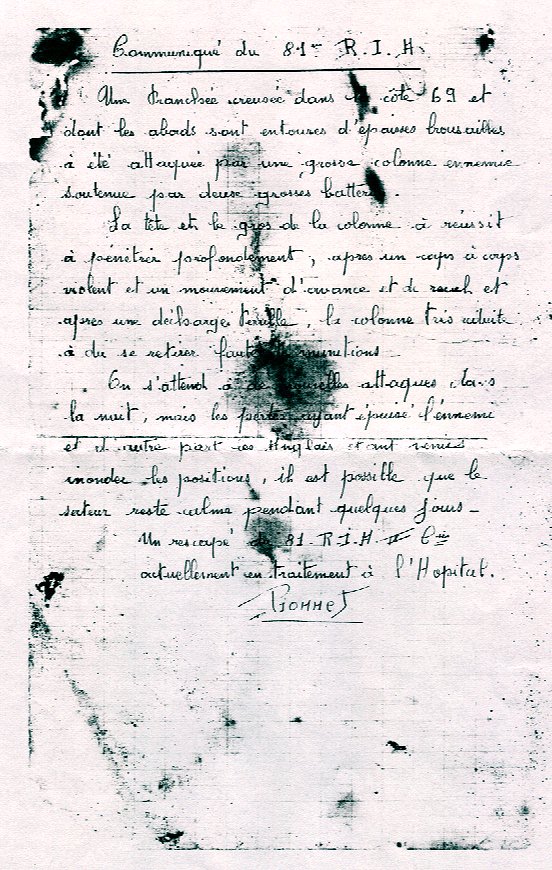 Communiqué du 81me R.I.H.
Une tranchée creusée dans la côte 69 et
dont les abords sont entourés d'épaisses brousailles
à été attaquée par une grosse colonne ennemie
soutenue par deux grosses batteries.
La tête et le gros de la colonne à réussit
à pénétrer profondement, apres un corps à corps
violent et un mouvement d'avance et de recul et
apres une décharge terrible, la colonne très réduite
à du se retirer faute de munitions
On s'attend à de nouvelles attaques dans
la nuit, mais les pertes ayant épuisé l'énnemi
et d'autre part les Anglais étant venus
inonder les positions, il est possible que le
secteur reste calme pendant quelques jours -
Un rescapé du 81 R.I.H. II Cie
actuellement en traitement à l'Hopital.
BONNET